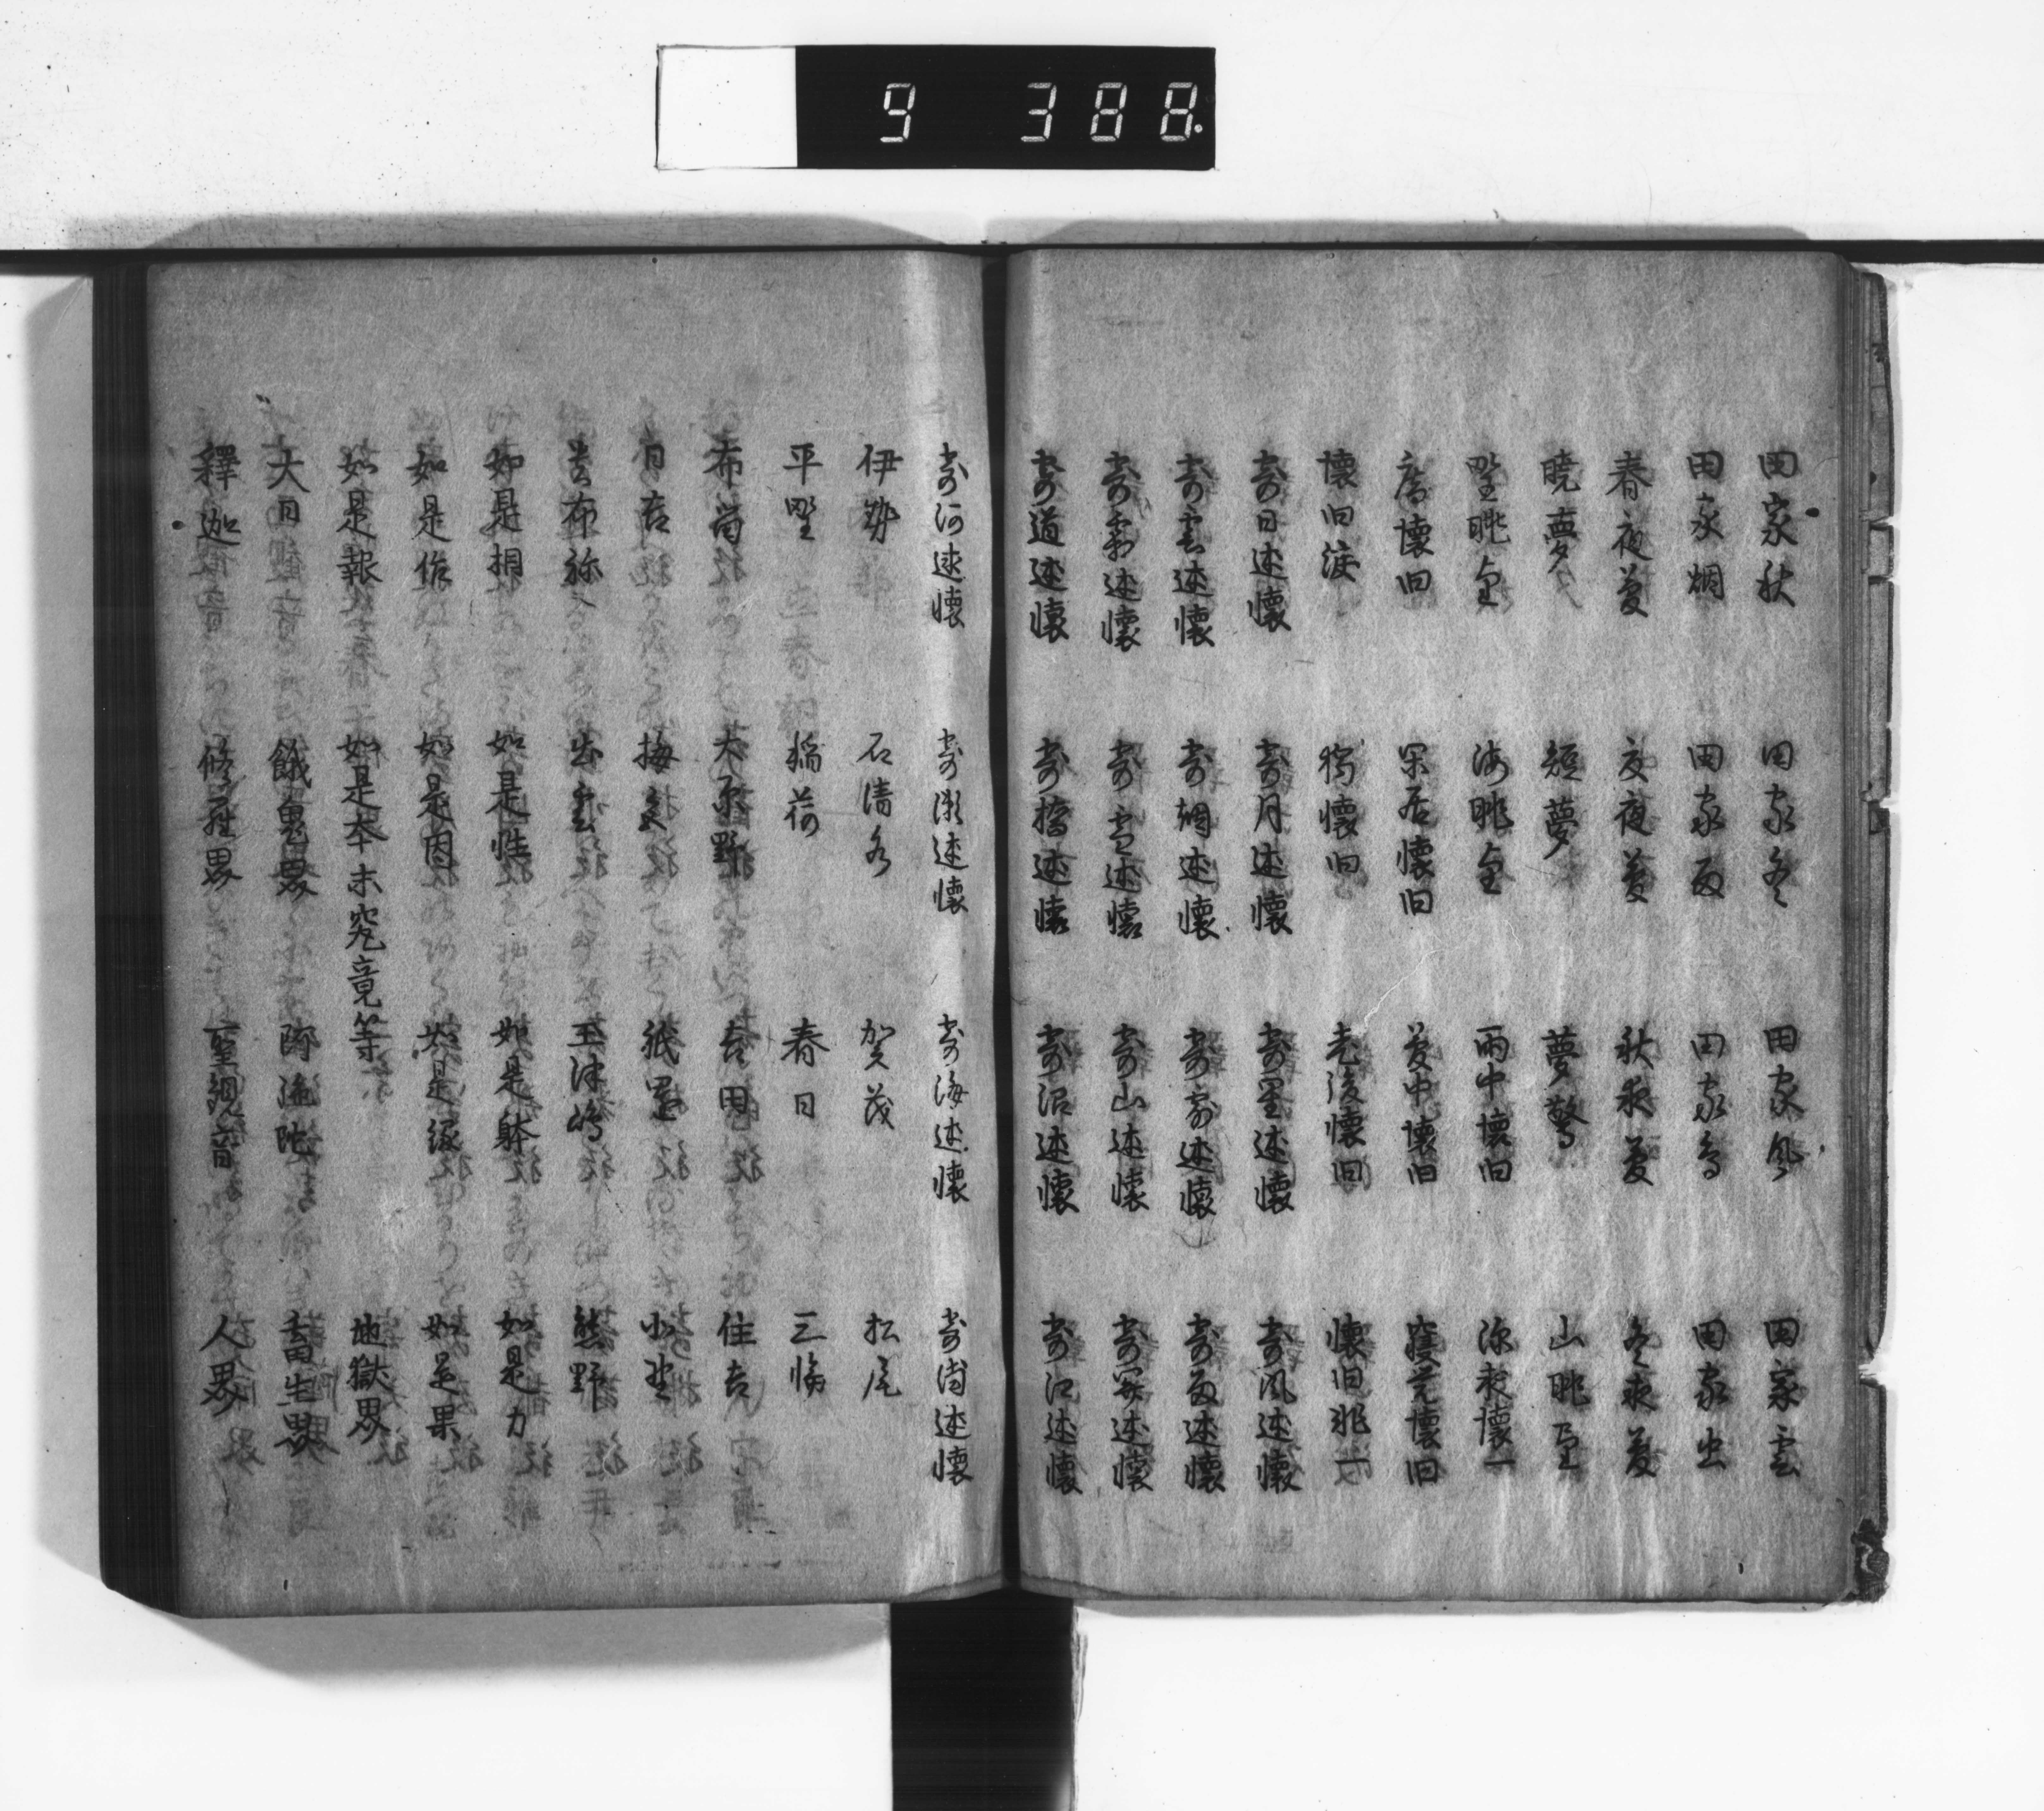 9 388
田家秋 田家冬 田家風 田家雲
田家烟 田家雨 田家鳥 田家虫
春夜夢 夏夜夢 秋夜夢 冬夜夢
暁夢 短夢 夢驚 山眺望
野眺望 海眺望 雨中懐旧 深夜懐一
懐旧 閑居懐旧 夢中懐旧 寝覚懐旧
懐旧涙 独懐旧 老後懐旧 懐旧非一
寄日述懐 寄月述懐 寄星述懐 寄風述懐
寄雲述懐 寄烟述懐 寄露述懐 寄雨述懐
寄霜述懐 寄雪述懐 寄山述懐 寄関述懐
寄道述懐 寄橋述懐 寄沼述懐 寄江述懐
寄河述懐 寄瀬述懐 寄海述懐 寄浦述懐
伊勢 石清水 賀茂 松尾
平野 稲荷 春日 三輪
布留 大原野 吉田 住吉
日吉 梅宮 祇園 北野
貴布祢 出雲 玉津嶋 熊野
如是相 如是性 如是躰 如是力
如是作 如是因 如是縁 如是果
如是報 如是本末究竟等 地獄界
大日 餓鬼界 阿弥陀 畜生界
釋迦 修羅界 聖観音 人界